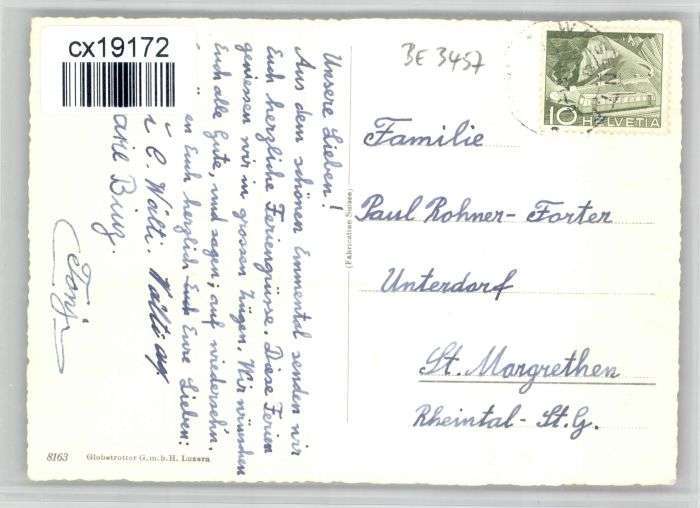 cx19172
BE 3457
10 HELVETIA
Unsere Lieben!
Aus dem schönen Emmental senden wir
Euch herzliche Feriengrüsse. Diese Ferien
geniessen wir in grossen Zügen. Wir wünschen
Euch alle Gute, und sagen; auf wiedersehn.
en Euch herzlich Euch Eure Lieben:
C. Wälti. Wälti
Tonj
(Fabrication Suisse)
Familie
Paul Rohner-Forter
Unterdorf
St. Margrethen
Rheintal-St.G.
8163 Globetrotter G.m.b.H. Luzern